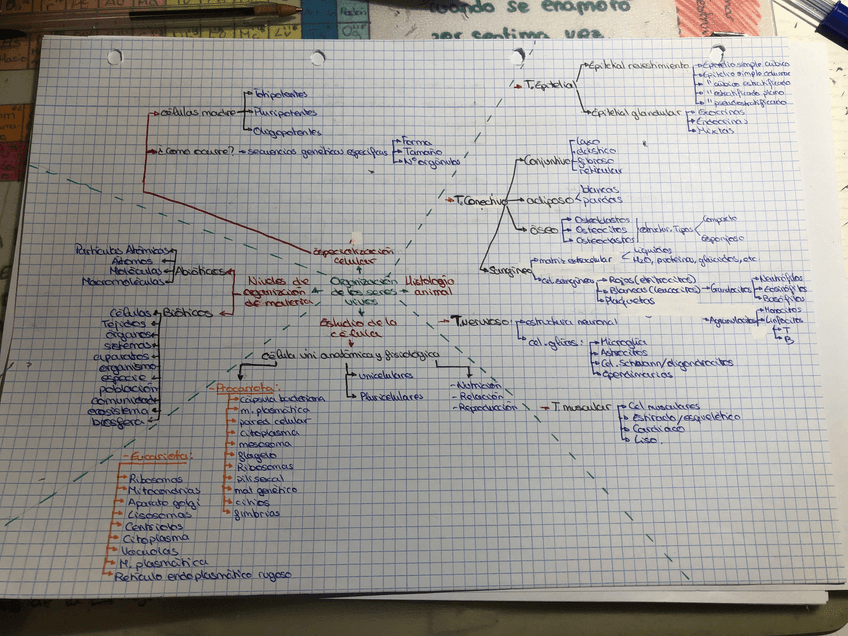 cuando se enamoró
por septima vez.
células madre
Totipotentes
Pluripotentes
Oligopotentes
¿Cómo ocurre? → secuencias genéticas específicas
Forma
Tamaño
Nº orgánulos
Especialización
celular
Organización
de los seres
vivos
Niveles de
organización
de materia
Abióticos
Partículas Atómicas
Átomos
Moléculas
Macromoléculas
Bióticos
Células
Tejidos
órganos
sistemas
aparatos
organismo
especie
población
comunidad
ecosistema
biosfera
Estudio de la
célula
célula uni anatómica y fisiológica
- Procariota:
cápsula bacteriana
m. plasmática
pared celular
citoplasma
mesosoma
flagelo
Ribosomas
pili sexal
mat genético
cilios
fimbrias
- Eucariota:
Ribosomas
Mitocondrias
Aparato golgi
Lisosomas
Centriolos
Citoplasma
Vacuolas
M. plasmática
Retículo endoplasmático rugoso
unicelulares
Pluricelulares
- Nutrición
- Relación
- Reproducción
Histología
animal
T. Epitelial
Epitelial revestimiento
Epitelio simple cúbico
Epitelio simple columnar
" cúbico estratificado
" estratificado plano
" pseudoestratificado
Epitelial glandular
Exocrinas
Endocrinas
Mixtas
T. Conectivo
Conjuntivo
Laxo
elástico
fibroso
reticular
adiposo
blancas
pardas
óseo
Osteoblastos
Osteocitos
Osteoclastos
Tipos
Compacto
Esponjoso
Sanguíneo
matriz extracelular
Líquidos
H₂O, proteínas, glúcidos, etc.
cel. sanguínea
Rojos (eritrocitos)
Blancas (leucocitos)
Plaquetas
Granulocitos
Neutrófilos
Eosinófilos
Basófilos
Agranulocitos
Monocitos
Linfocitos
T
B
T. nervioso
estructura neuronal
cel. glías:
Microglía
Astrocitos
Cel. Schwann/oligendrocitos
Ependimarias
T. muscular
Cel musculares
Estriado/esquelético
Cardiaco
Liso.